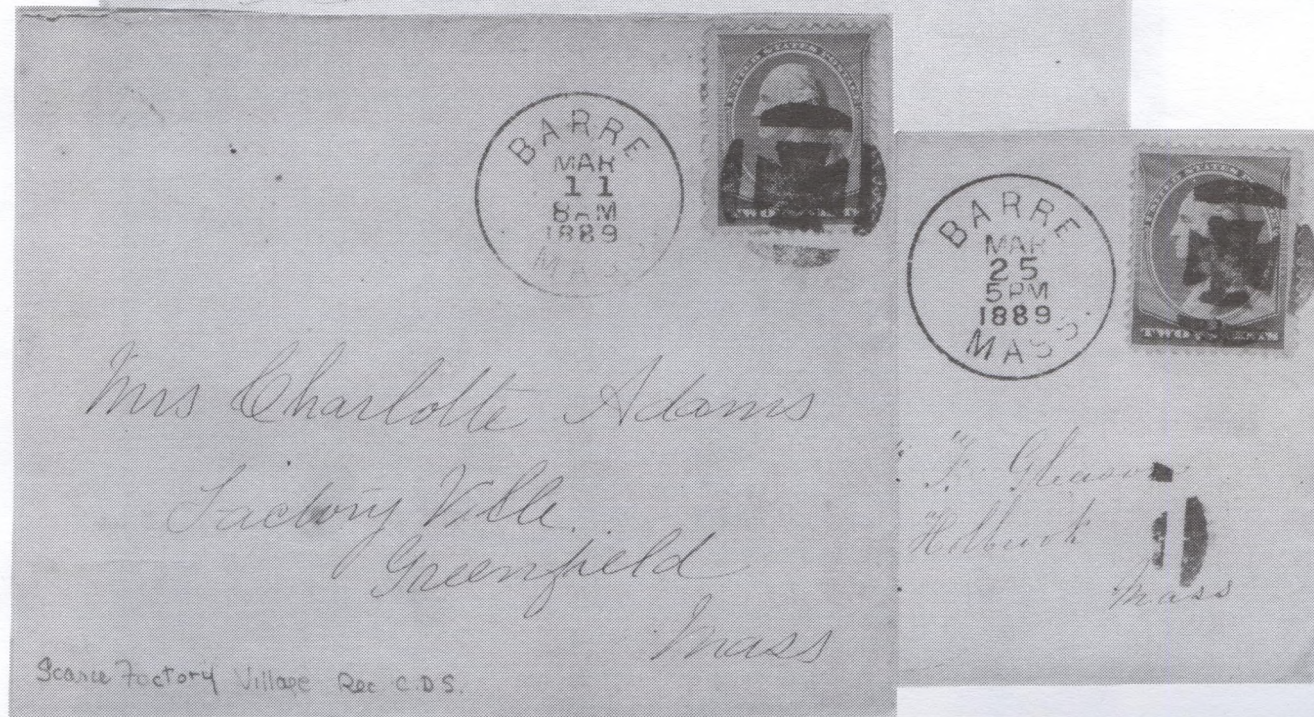 BARRE
MAR
11
8AM
1889
MASS.
UNITED STATES POSTAGE
Mrs Charlotte Adams
Factory Ville
Greenfield
Mass
Scarce Factory Village Rec C.D.S.
BARRE
MAR
25
5PM
1889
MASS.
UNITED STATES
TWO CENTS
F. Gleason
Holbrook
Mass